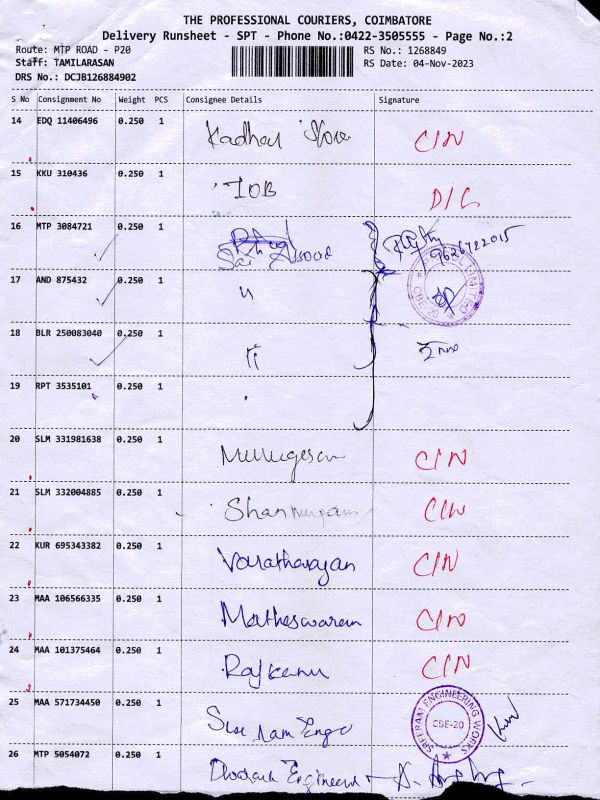 THE PROFESSIONAL COURIERS, COIMBATORE
Delivery Runsheet - SPT - Phone No.:0422-3505555 - Page No.:2
Route: MTP ROAD - P20
RS No.: 1268849
Staff: TAMILARASAN
RS Date: 04-Nov-2023
DRS No.: DCJB126884902
S No Consignment No Weight PCS Consignee Details Signature
14 EDQ 11406496 0.250 1 CIN
15 KKU 310436 0.250 1 IOB D/C
16 MTP 3084721 0.250 1 Sai
9626722015
17 AND 875432 0.250 1 "
LIMITED
CBE-20
18 BLR 250083040 0.250 1 "
19 RPT 3535101 0.250 1
20 SLM 331981638 0.250 1 Murugesan CIN
21 SLM 332004885 0.250 1 Shanmugam CIN
22 KUR 695343382 0.250 1 Varatharajan CIN
23 MAA 106566335 0.250 1 Matheswaran CIN
24 MAA 101375464 0.250 1 Rajkanu CIN
25 MAA 571734450 0.250 1 Sree Ram Engg
SREERAM ENGINEERING WORKS
CBE-20
26 MTP 5054072 0.250 1